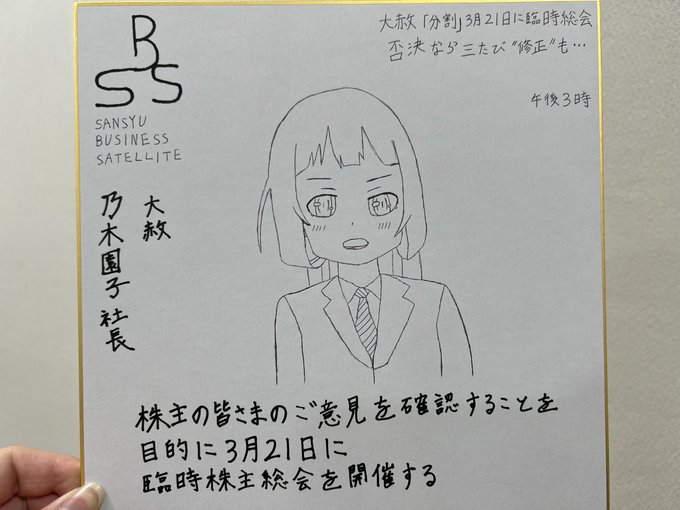 BSS
SANSYU
BUSINESS
SATELLITE
大赦「分割」3月21日に臨時総会
否決なら三たび“修正”も…
午後3時
大赦
乃木園子社長
株主の皆さまのご意見を確認することを
目的に3月21日に
臨時株主総会を開催する